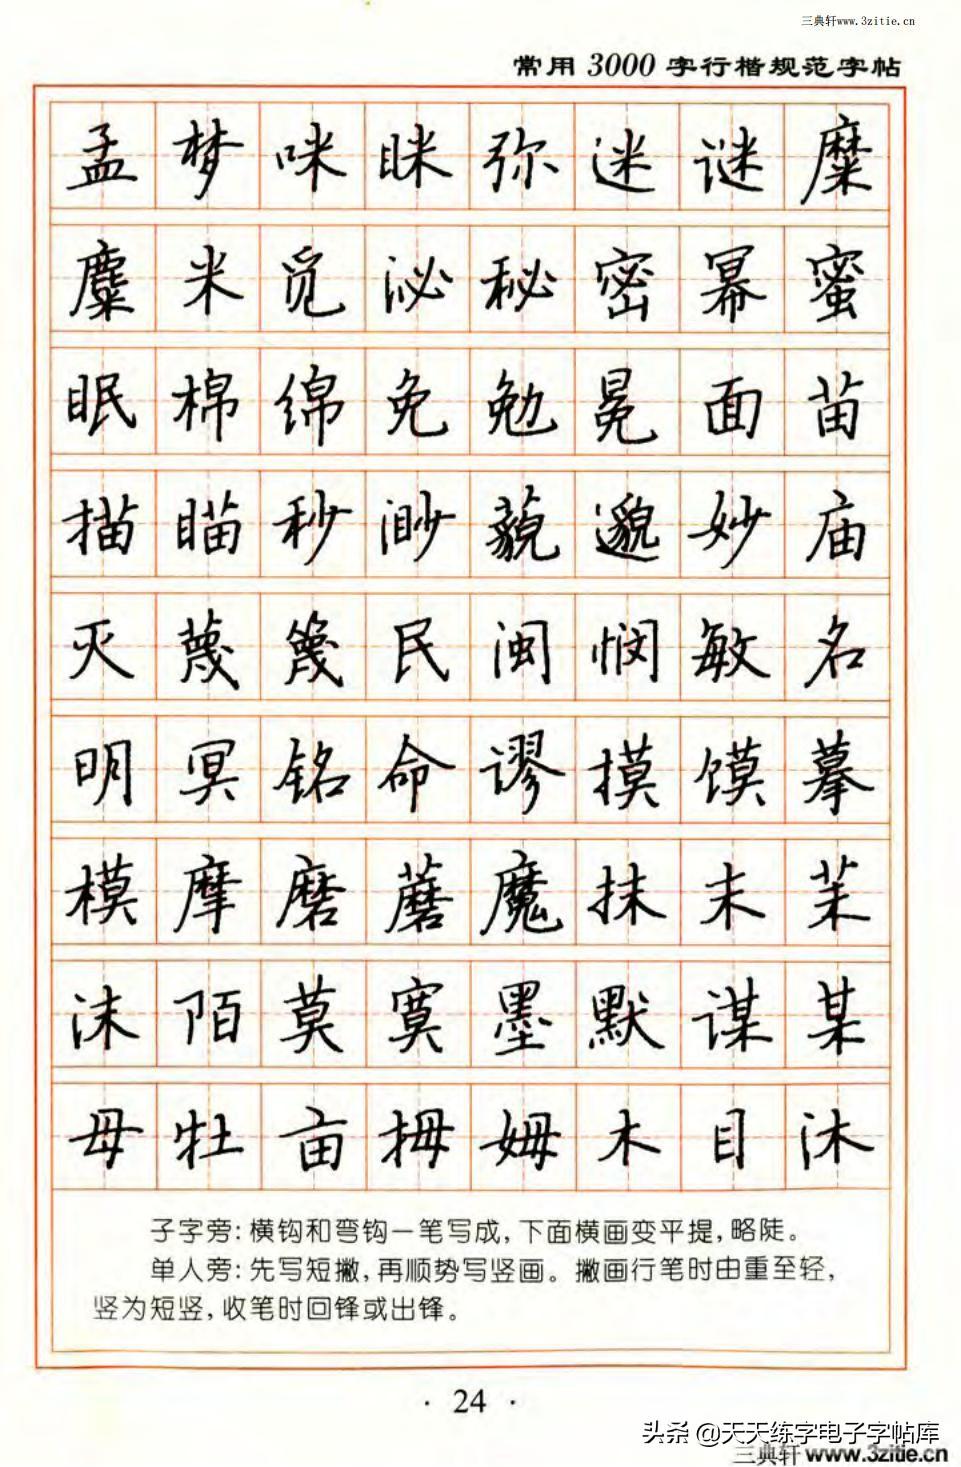 三典轩www.3zitie.cn
常用3000字行楷规范字帖
孟梦咪眯弥迷谜糜
麋米觅泌秘密幂蜜
眠棉绵免勉冕面苗
描瞄秒渺藐邈妙庙
灭蔑篾民闽悯敏名
明冥铭命谬摸馍摹
模摩磨蘑魔抹末茉
沫陌莫寞墨默谋某
母牡亩拇姆木目沐
子字旁:横钩和弯钩一笔写成,下面横画变平提,略陡。
单人旁:先写短撇,再顺势写竖画。撇画行笔时由重至轻,
竖为短竖,收笔时回锋或出锋。
· 24 ·
头条 @天天练字电子字帖库
三典轩 www.3zitie.cn